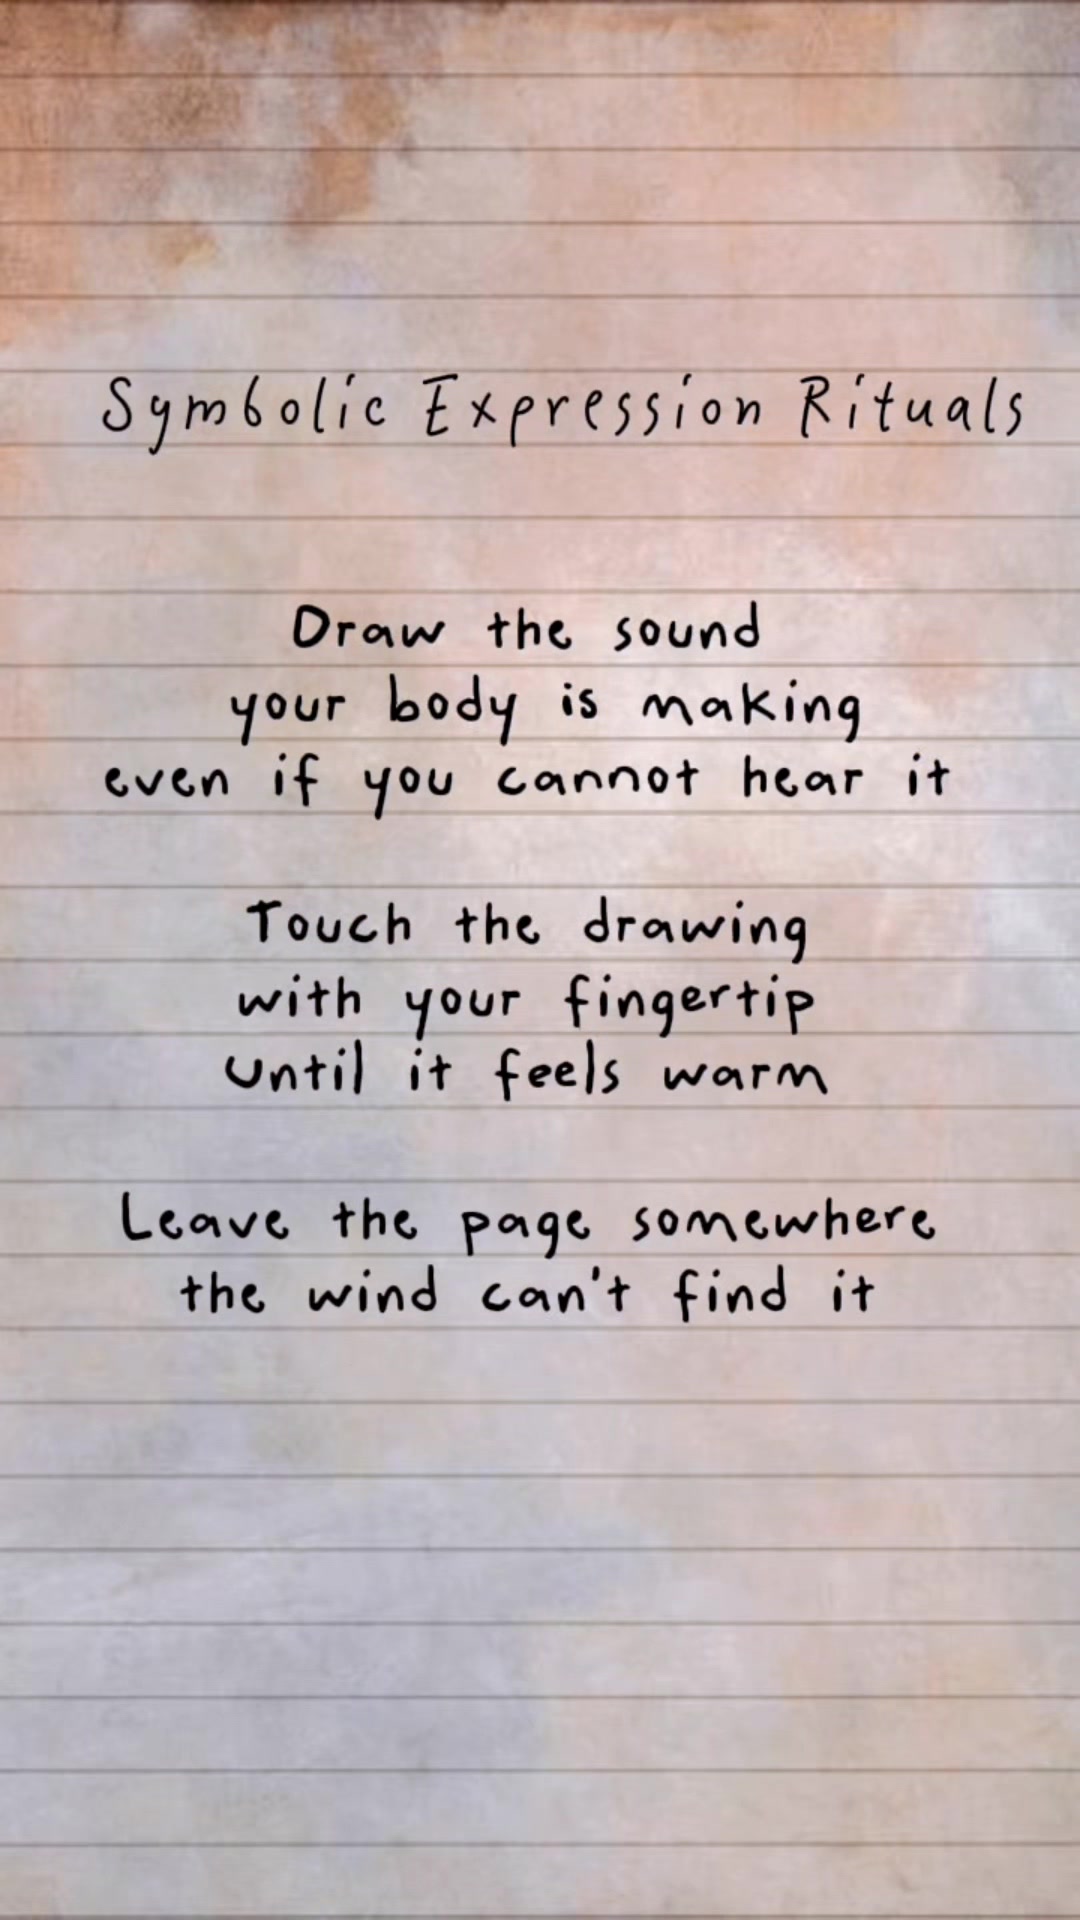 Symbolic Expression Rituals
Draw the sound
your body is making
even if you cannot hear it
Touch the drawing
with your fingertip
until it feels warm
Leave the page somewhere
the wind can't find it